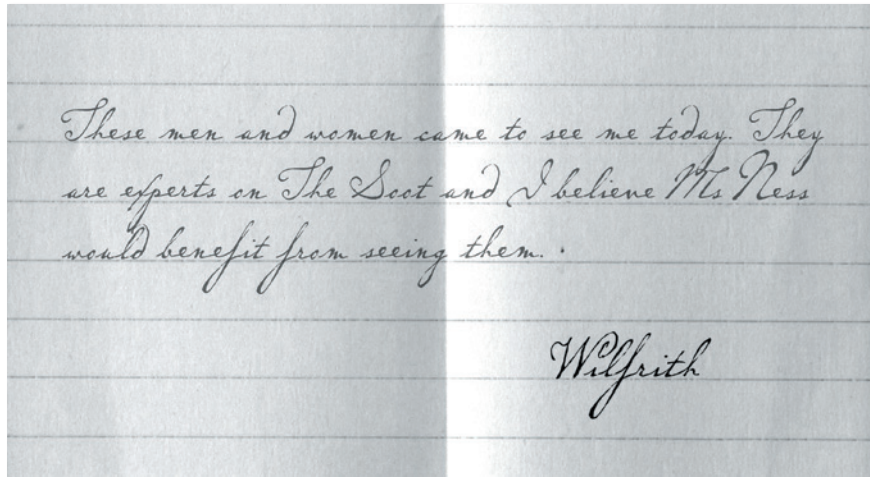 These men and women came to see me today. They
are experts on The Scot and I believe Ms Ness
would benefit from seeing them.
Wilfrith